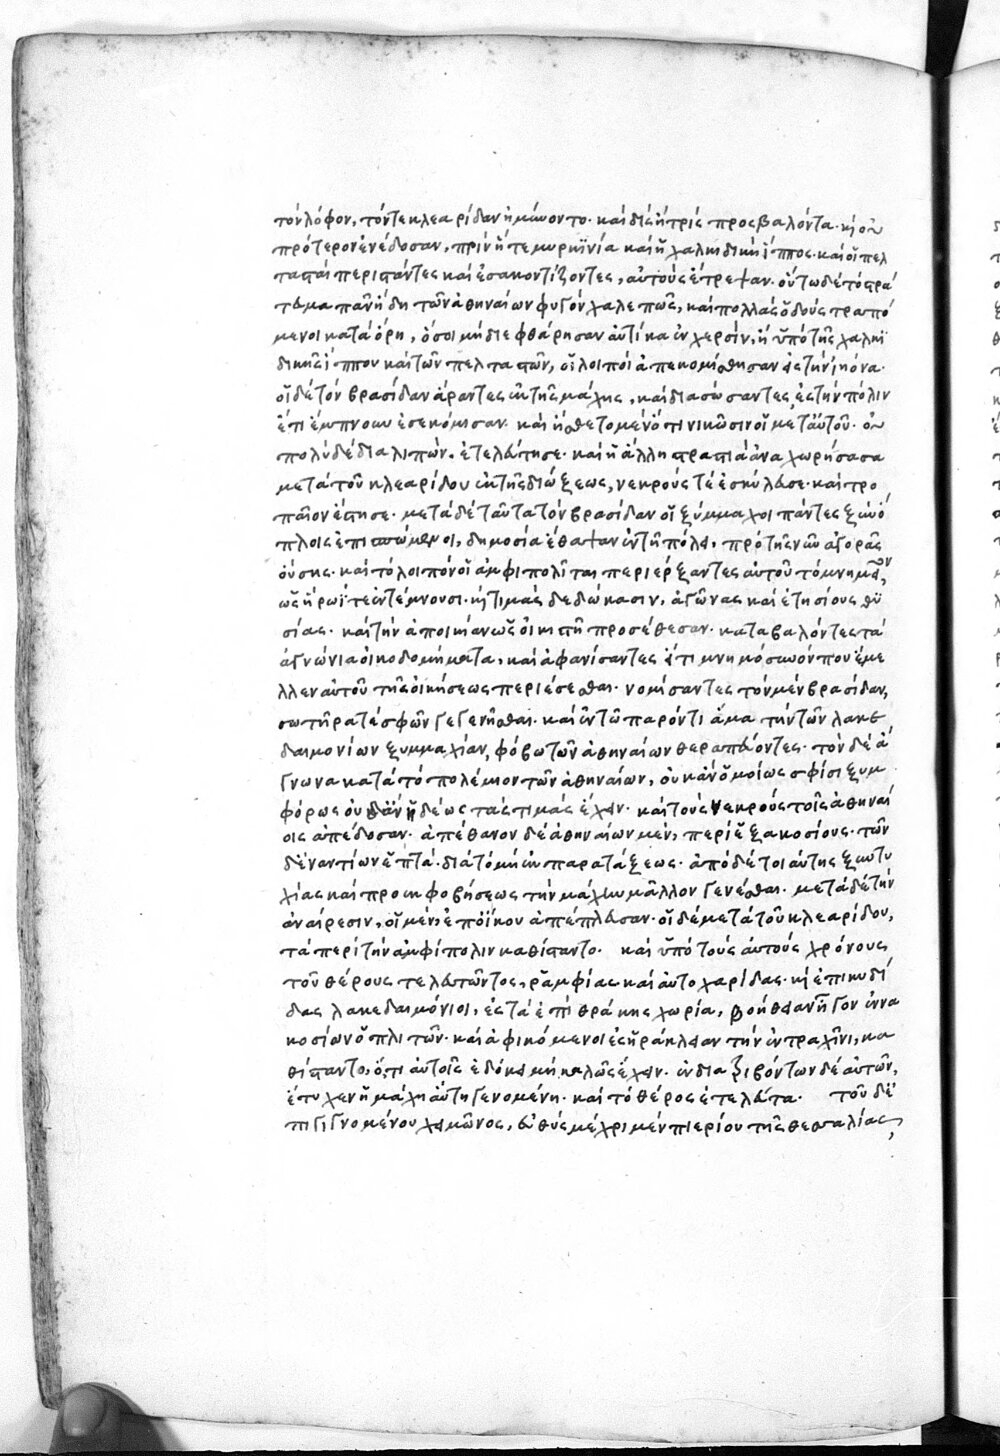 τὸν λόφον, τόν τε κλεαρίδαν ἠμύνοντο· καὶ δὶς ἢ τρὶς προσβαλόντα· καὶ οὐ
πρότερον ἐνέδοσαν, πρὶν ἥ τε μυρκινία καὶ ἡ χαλκιδικὴ ἵππος· καὶ οἱ πελ
τασταὶ περιστάντες καὶ ἐσακοντίζοντες, αὐτοὺς ἔτρεψαν. οὕτω δὲ τὸ στρά
τευμα πᾶν ἤδη τῶν ἀθηναίων φυγὸν χαλεπῶς, καὶ πολλὰς ὁδοὺς τραπό
μενοι κατὰ ὄρη, ὅσοι μὴ διεφθάρησαν αὐτίκα ἐν χερσὶν, ἢ ὑπὸ τῆς χαλκι
δικῆς ἵππου καὶ τῶν πελταστῶν, οἱ λοιποὶ ἀπεκομίσθησαν ἐς τὴν ἠιόνα·
οἱ δὲ τὸν βρασίδαν ἄραντες ἐκ τῆς μάχης, καὶ διασώσαντες, ἐς τὴν πόλιν
ἔτι ἔμπνουν ἐσεκόμισαν· καὶ ᾔσθετο μὲν ὅτι νικῶσιν οἱ μεταὐτοῦ· οὐ
πολὺ δὲ διαλιπὼν. ἐτελεύτησε· καὶ ἡ ἄλλη στρατιὰ ἀναχωρήσασα
μετὰ τοῦ κλεαρίδου ἐκ τῆς διώξεως, νεκρούς τὲ ἐσκύλευσε· καὶ τρο
παῖον ἔστησε· μετὰ δὲ ταῦτα τὸν βρασίδαν οἱ ξύμμαχοι πάντες ξὺν ὅ
πλοις ἐπισπώμενοι, δημοσία ἔθαψαν ἐν τῇ πόλει, πρὸ τῆς νῦν ἀγορᾶς
οὔσης· καὶ τὸ λοιπὸν οἱ ἀμφιπολῖται περιέρξαντες αὐτοῦ τὸ μνημεῖον,
ὡς ἥρωϊ τε ἐντέμνουσι· καὶ τιμὰς δεδώκασιν, ἀγῶνας καὶ ἐτησίους θυ
σίας· καὶ τὴν ἀποικίαν ὡς οἰκιστῇ προσέθεσαν· καταβαλόντες τὰ
ἁγνώνια οἰκοδομήματα, καὶ ἀφανίσαντες εἴ τι μνημόσυνόν που ἔμε
λλεν αὐτοῦ τῆς οἰκήσεως περιέσεσθαι· νομίσαντες τὸν μὲν βρασίδαν,
σωτῆρα τὲ σφῶν γεγενῆσθαι· καὶ ἐν τῶ παρόντι ἅμα τὴν τῶν λακε
δαιμονίων ξυμμαχίαν, φόβω τῶν ἀθηναίων θεραπεύοντες· τὸν δὲ ἅ
γνωνα κατὰ τὸ πολέμιον τῶν ἀθηναίων, οὐκ ἂν ὁμοίως σφίσι ξυμ
φόρως οὐδ' ἂν ἡδέως τὰς τιμὰς ἔχειν· καὶ τοὺς νεκροὺς τοῖς ἀθηναί
οις ἀπέδοσαν· ἀπέθανον δὲ ἀθηναίων μὲν, περὶ ἑξακοσίους· τῶν
δ' ἐναντίων ἑπτά· διὰ τὸ μὴ ἐκ παρατάξεως· ἀπὸ δὲ τοιαύτης ξυντυ
χίας καὶ προεκφοβήσεως τὴν μάχην μᾶλλον γενέσθαι· μετὰ δὲ τὴν
ἀναίρεσιν, οἱ μὲν, ἐπ' οἴκου ἀπέπλευσαν· οἱ δὲ μετὰ τοῦ κλεαρίδου,
τὰ περὶ τὴν ἀμφίπολιν καθίσταντο· καὶ ὑπὸ τοὺς αὐτοὺς χρόνους
τοῦ θέρους τελευτῶντος, ῥαμφίας καὶ αὐτοχαρίδας· καὶ ἐπικυδί
δας λακεδαιμόνιοι, ἐς τὰ ἐπὶ θράκης χωρία, βοήθειαν ἦγον ἐννα
κοσίων ὁπλιτῶν· καὶ ἀφικόμενοι ἐς ἡράκλειαν τὴν ἐν τραχῖνι, κα
θίσταντο, ὅ,τι αὐτοῖς ἐδόκει μὴ καλῶς ἔχειν· ἐνδιατριβόντων δὲ αὐτῶν,
ἔτυχεν ἡ μάχη αὕτη γενομένη· καὶ τὸ θέρος ἐτελεύτα· τοῦ δ' ἐ
πιγιγνομένου χειμῶνος, εὐθὺς μέχρι μὲν πιερίου τῆς θεσσαλίας,